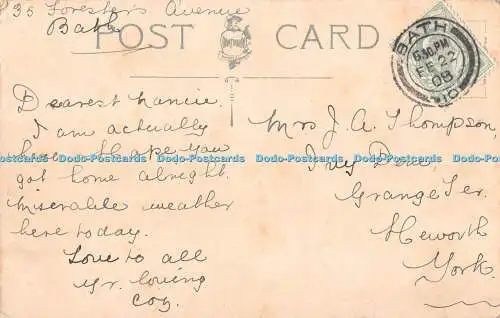 35 Forester's Avenue
Bath
POST CARD
BATH
6.30 PM
FE 22
08
10
Dearest
I am actually
here. Hope you
got home alright.
Miserable weather
here today.
Love to all
Yr. loving
Mrs J. A. Thompson,
Grange Ter.
Heworth
York.
Dodo-Postcards Dodo-Postcards Dodo-Postcards Dodo-Postcards Dodo-Postcards Dodo-Postcards